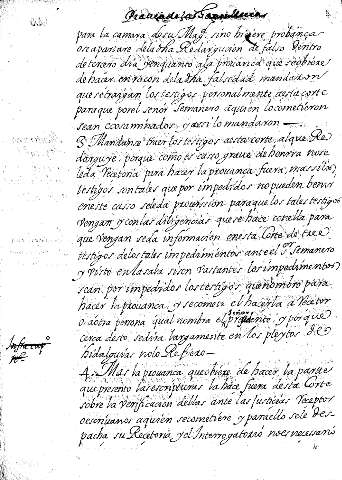 para la camara de su Mag. sino hiçiere probança
o se apartare de la dha Redarguicion de falso dentro
de terçero dia yen quanto a la probança que se obiere
de haçer en raçon de la dha falsedad mandaron
que se traigan los testigos personalmente a esta corte
para que por el señor semanero a quien lo cometieron
sean examinados, y assi lo mandaron
3. Mandanse traer los testigos a esta corte, al que Re
darguye porque como es caso graue de honrra no se
le da Recetoria para hacer la prouanca fuera, mas si los
testigos son tales que por impedidos no pueden benir
en este caso se le da prouission para que los tales testigos
vengan, y con las diligencias que se haçe con ella para
que vengan se da informacion en esta Corte de tres
testigos de los tales impedimentos ante el sr Semanero
y visto en la sala si son vastantes los impedimentos
se an por impedidos los testigos que nombro para
hacer la prouança, y se comete el hacerla a Rector
o a otra persona qual nombra el señor presidente, y porque
cerca desto se dira largamente en los pleytos de
hidalguias no lo Refiero
4. Mas la prouança que obiere de haçer la parte
que presento las escripturas la haçe fuera de esta Corte
sobre la verificaçion dellas ante las Justiçias Receptor
o escriuano a quien se cometiere y para ello se le des
pacha su Receptoria, y el Interrogatorio no es necessario